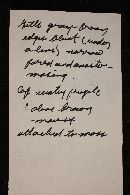 Gills gray brown
edges blunt (under
a lens) narrow
forked and anasto-
mosing.
Cap watery purple
brown
attached to moss